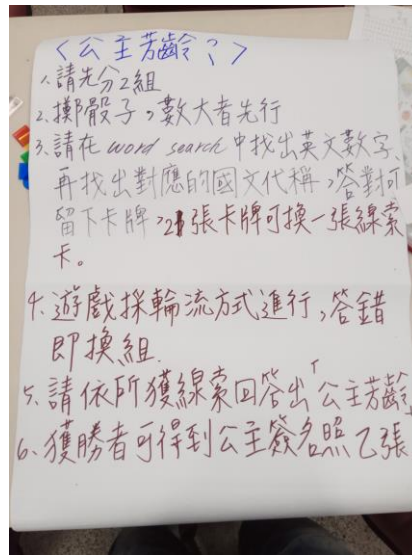 <公主芳齡?>
1.請先分2組
2.擲骰子,數大者先行
3.請在word search中找出英文數字,
再找出對應的國文代稱,答對可
留下卡牌,2張卡牌可換一張線索
卡。
4.遊戲採輪流方式進行,答錯
即換組.
5.請依所獲線索回答出「公主芳齡
6.獲勝者可得到公主簽名照乙張